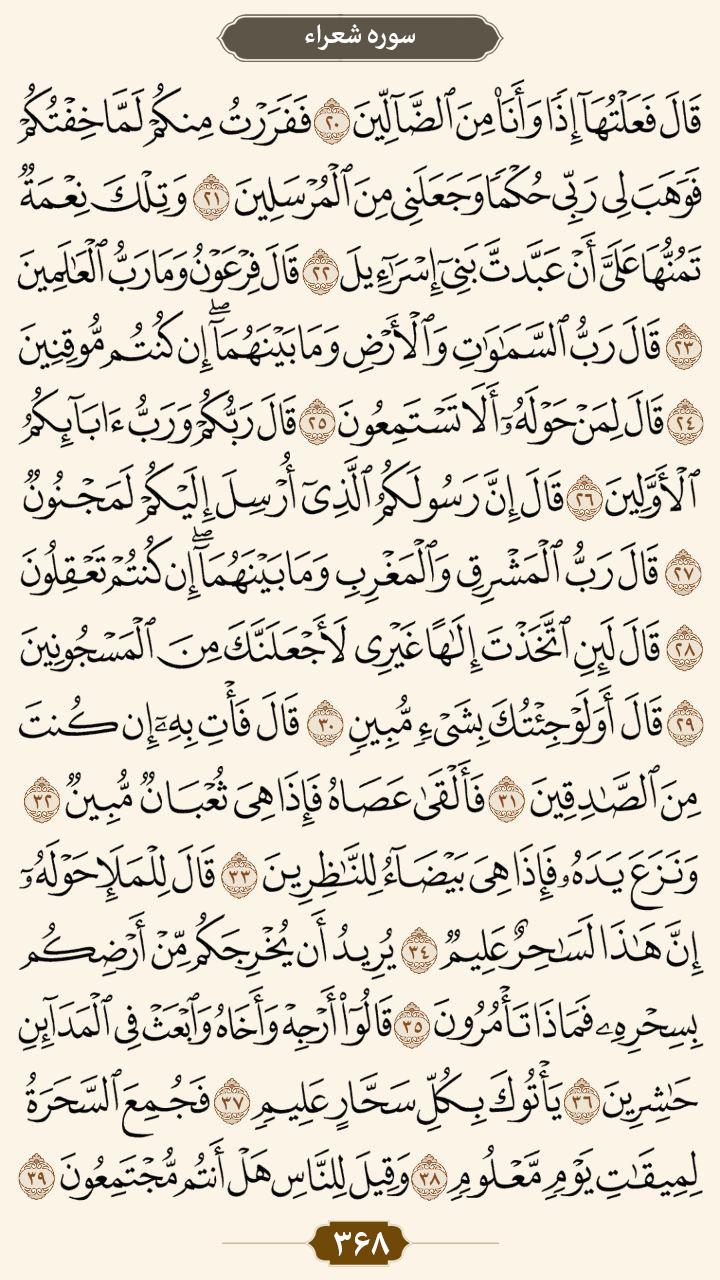 سوره شعراء
قَالَ فَعَلْتُهَآ إِذًا وَأَنَا۠ مِنَ ٱلضَّآلِّينَ ٢٠ فَفَرَرْتُ مِنكُمْ لَمَّا خِفْتُكُمْ
فَوَهَبَ لِى رَبِّى حُكْمًا وَجَعَلَنِى مِنَ ٱلْمُرْسَلِينَ ٢١ وَتِلْكَ نِعْمَةٌ
تَمُنُّهَا عَلَىَّ أَنْ عَبَّدتَّ بَنِىٓ إِسْرَٰٓءِيلَ ٢٢ قَالَ فِرْعَوْنُ وَمَا رَبُّ ٱلْعَٰلَمِينَ
٢٣ قَالَ رَبُّ ٱلسَّمَٰوَٰتِ وَٱلْأَرْضِ وَمَا بَيْنَهُمَآ ۖ إِن كُنتُم مُّوقِنِينَ
٢٤ قَالَ لِمَنْ حَوْلَهُۥٓ أَلَا تَسْتَمِعُونَ ٢٥ قَالَ رَبُّكُمْ وَرَبُّ ءَابَآئِكُمُ
ٱلْأَوَّلِينَ ٢٦ قَالَ إِنَّ رَسُولَكُمُ ٱلَّذِىٓ أُرْسِلَ إِلَيْكُمْ لَمَجْنُونٌ
٢٧ قَالَ رَبُّ ٱلْمَشْرِقِ وَٱلْمَغْرِبِ وَمَا بَيْنَهُمَآ ۖ إِن كُنتُمْ تَعْقِلُونَ
٢٨ قَالَ لَئِنِ ٱتَّخَذْتَ إِلَٰهًا غَيْرِى لَأَجْعَلَنَّكَ مِنَ ٱلْمَسْجُونِينَ
٢٩ قَالَ أَوَلَوْ جِئْتُكَ بِشَىْءٍ مُّبِينٍ ٣٠ قَالَ فَأْتِ بِهِۦٓ إِن كُنتَ
مِنَ ٱلصَّٰدِقِينَ ٣١ فَأَلْقَىٰ عَصَاهُ فَإِذَا هِىَ ثُعْبَانٌ مُّبِينٌ ٣٢
وَنَزَعَ يَدَهُۥ فَإِذَا هِىَ بَيْضَآءُ لِلنَّٰظِرِينَ ٣٣ قَالَ لِلْمَلَإِ حَوْلَهُۥٓ
إِنَّ هَٰذَا لَسَٰحِرٌ عَلِيمٌ ٣٤ يُرِيدُ أَن يُخْرِجَكُم مِّنْ أَرْضِكُم
بِسِحْرِهِۦ فَمَاذَا تَأْمُرُونَ ٣٥ قَالُوٓا۟ أَرْجِهْ وَأَخَاهُ وَٱبْعَثْ فِى ٱلْمَدَآئِنِ
حَٰشِرِينَ ٣٦ يَأْتُوكَ بِكُلِّ سَحَّارٍ عَلِيمٍ ٣٧ فَجُمِعَ ٱلسَّحَرَةُ
لِمِيقَٰتِ يَوْمٍ مَّعْلُومٍ ٣٨ وَقِيلَ لِلنَّاسِ هَلْ أَنتُم مُّجْتَمِعُونَ ٣٩
۳۶۸